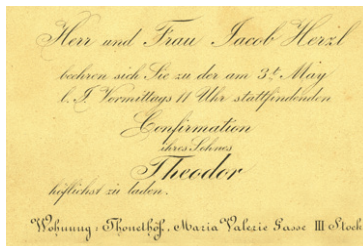 Herr und Frau Jacob Herzl
beehren sich Sie zu der am 3t. May
l. J. Vormittags 11 Uhr stattfindenden
Confirmation
ihres Sohnes
Theodor
höflichst zu laden.
Wohnung: Thonethof, Maria Valerie Gasse III Stock